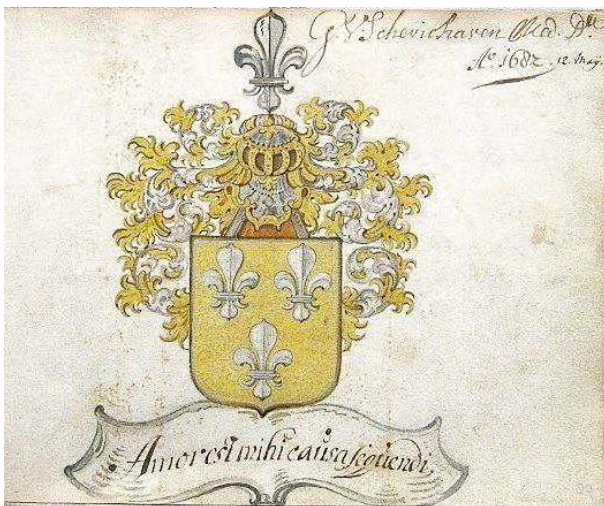 G. V. Scherichaven Med. Dr.
Aº 1682 12. May.
Amor est mihi causa sequendi.